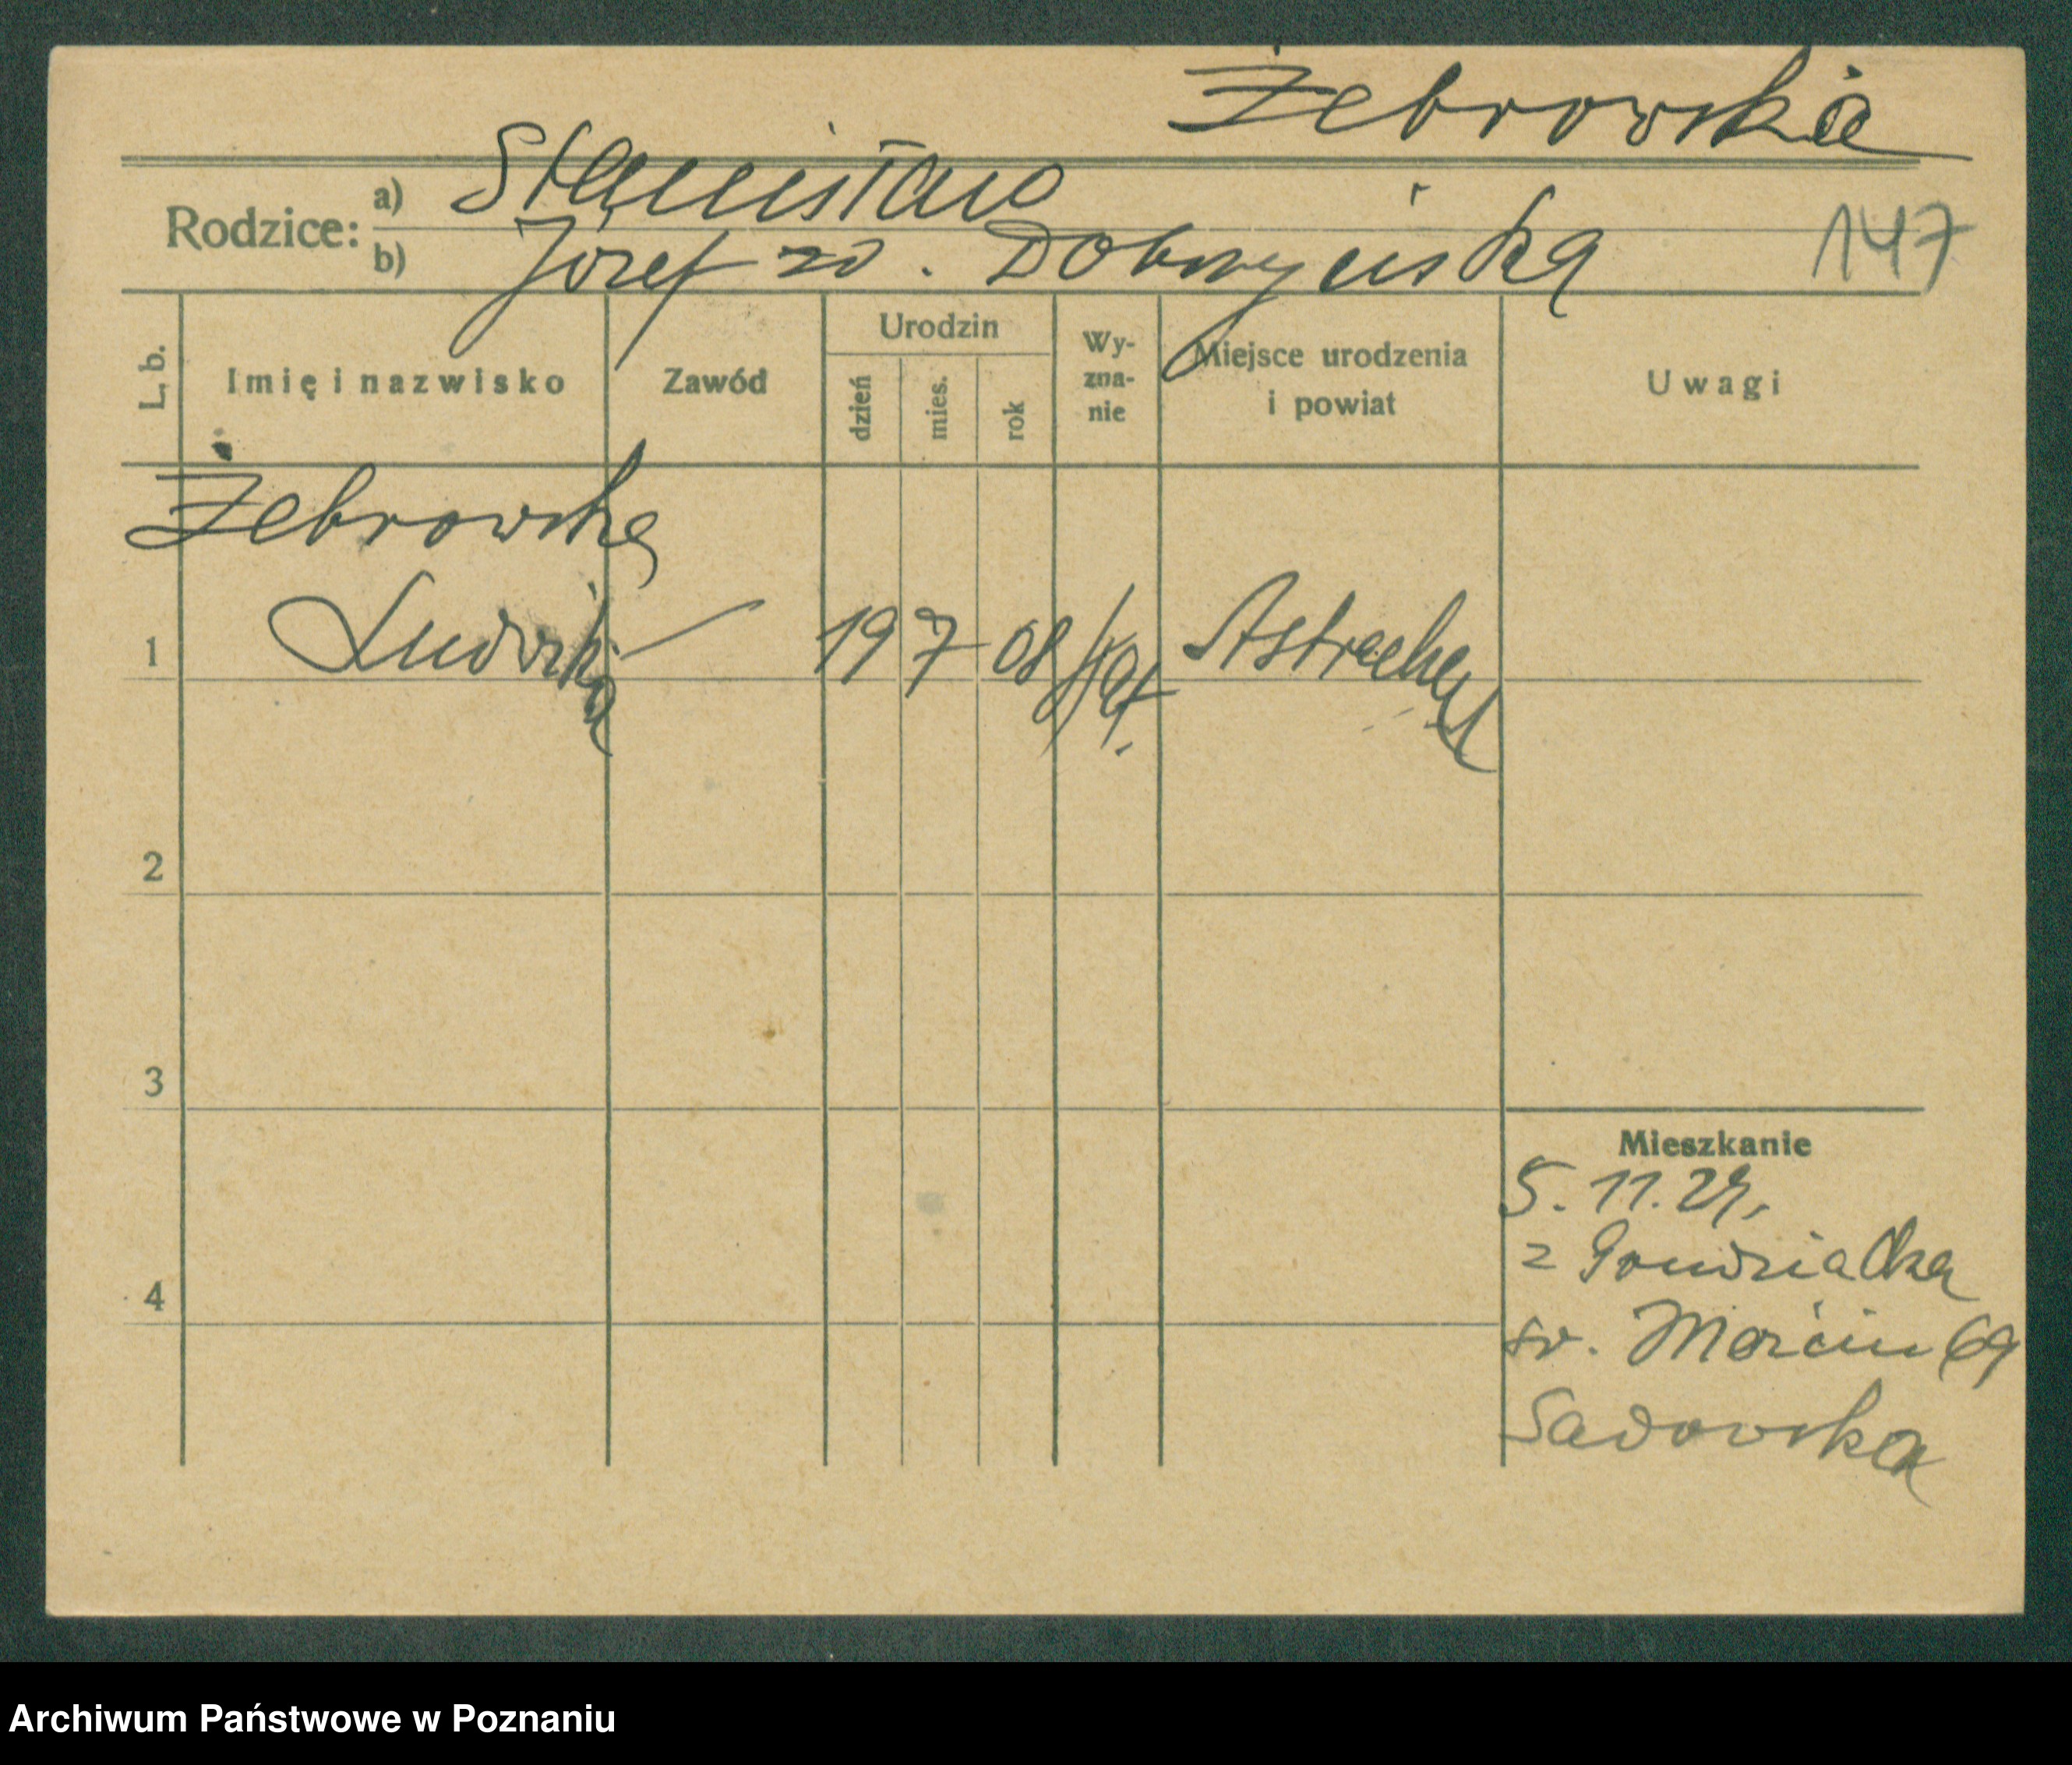 Żebrowska
Rodzice: a) Stanisław
b) Józef zd. Dobrzyńska
147
L. b. Imię i nazwisko Zawód Urodzin dzień mies. rok Wy-zna-nie Miejsce urodzenia i powiat Uwagi
Żebrowska
1 Ludwika — 19 7 08 kat. Astrachań
2
3
Mieszkanie
5. 11. 24,
z Grudziądza
4
św. Marcin 69
Sadowska
Archiwum Państwowe w Poznaniu